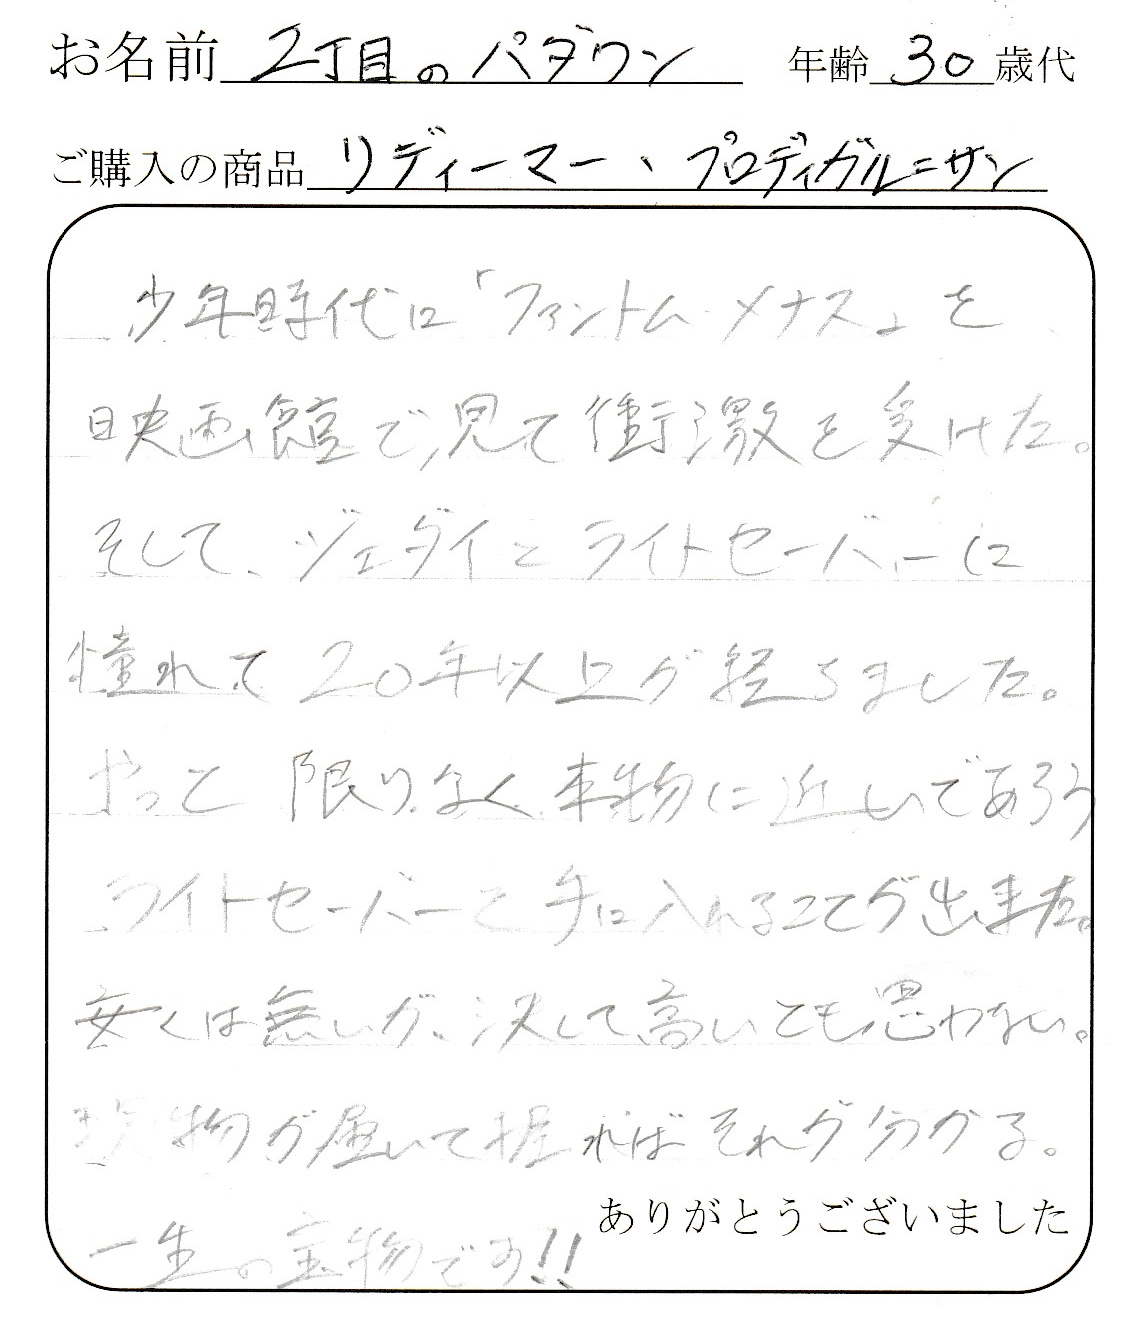 お名前 2丁目のパダワン 年齢 30 歳代
ご購入の商品 リディーマー、プロディガルニサン
少年時代に「ファントムメナス」を
映画館で見て衝激を受けた。
そして、ジェダイとライトセーバーに
憧れて20年以上が経ちました。
やっと 限りなく本物に近いであろう
ライトセーバーを手に入れることが出来た。
安くは無いが、決して高いとも思わない。
現物が届いて握ればそれが分かる。
一生の宝物です!!
ありがとうございました